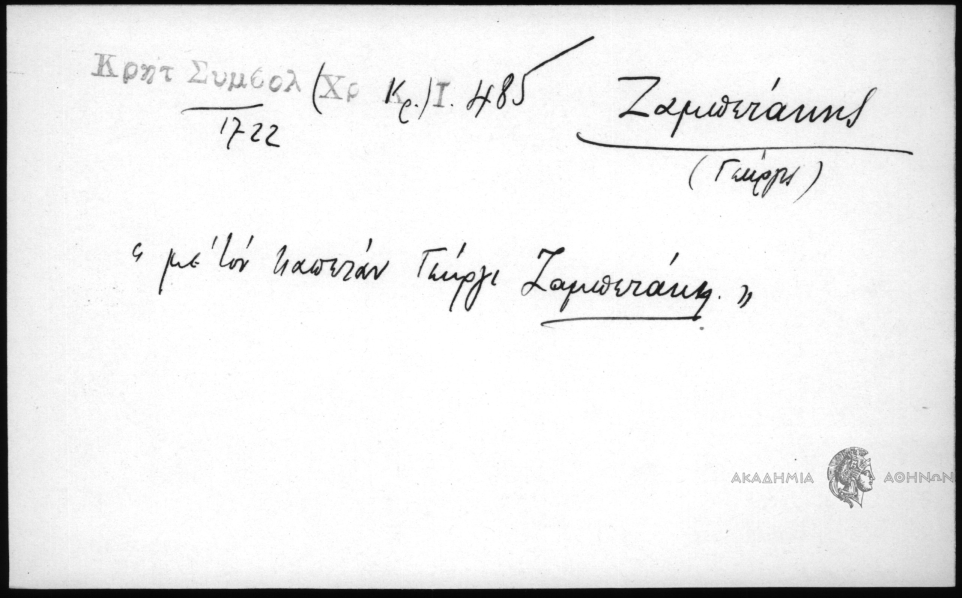 Κρητ Συμβολ (Χρ Κρ.) Ι. 485
1722
Ζαμπετάκης
(Γεώργης)
" με τόν καπετάν Γεώργι Ζαμπετάκη. "
ΑΚΑΔΗΜΙΑ ΑΘΗΝΩΝ